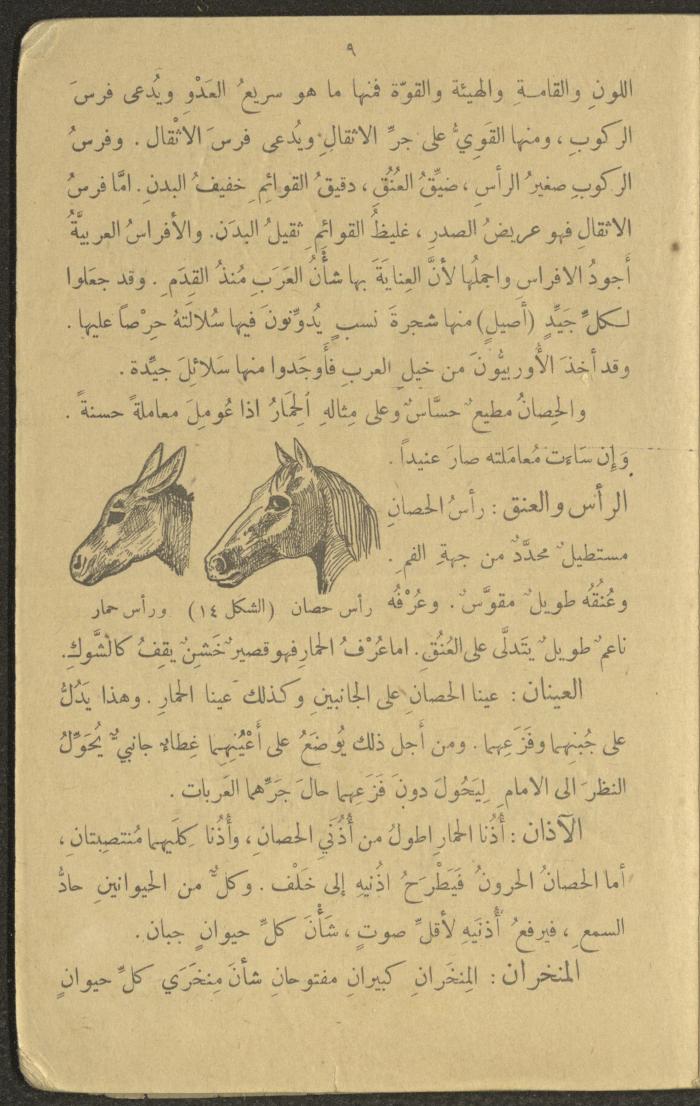 ٩
اللونِ والقامـةِ والهيئة والقوّة فمنها ما هو سريعُ العَدْوِ ويُدعى فرسَ
الركوبِ ، ومنها القَوِيُّ على جرِّ الاثقالِ ويُدعى فرسَ الاثْقال . وفرسُ
الركوبِ صغيرُ الرأسِ ، ضيِّقُ العُنُقِ ، دقيقُ القوائمِ خفيفُ البدنِ . امَّا فرسُ
الاثقالِ فهو عريضُ الصدرِ ، غليظُ القوائمِ ثقيلُ البدَن. والأفراسُ العربيَّةُ
أجودُ الافراسِ واجملُها لأنَّ العِنايَةَ بها شأنُ العَرَبِ مُنذُ القِدَمِ . وقد جعَلوا
لـكلِّ جَيِّدٍ (أصيلٍ) منها شجرةَ نسبٍ يُدوِّنونَ فيها سُلالَتهُ حِرْصاً عليها .
وقد أخذَ الأُوربيُّونَ من خيلِ العربِ فأَوجَدوا منها سَلائلَ جيِّدة .
والحِصانُ مطيعٌ حسَّاسٌ وعلى مِثالهِ الحِمَارُ اذا عُومِلَ معاملةً حسنةً .
وَإِن سَاءَت مُعامَلته صارَ عنيداً .
الرأس والعنق : رأسُ الحصانِ
مستطيلٌ محدَّدٌ من جهةِ الفمِ .
وعُنقُه طويلٌ مقوَّسٌ . وعُرْفُه
رأس حصان (الشكل ١٤) ورأس حمار
ناعمٌ طويلٌ يتَدلَّى على العُنُق. اما عُرْفُ الحمارِ فهو قصيرٌ خَشنٌ يقفُ كالشَّوكِ.
العينان : عينا الحصانِ على الجانبينِ وكذلك عينا الحمارِ . وهذا يَدُلُّ
على جُبنِهما وفَزَعِهما . ومن أجل ذلك يُوضَعُ على أَعْيُنِهِما غِطاءٌ جانبيٌّ يُحَوِّلُ
النظرَ الى الامامِ لِيَحُولَ دونَ فَزَعِهما حالَ جَرِّهما العَربات .
الآذان : أُذُنا الحمارِ اطولُ من أُذُنَيِ الحصانِ ، وأُذُنا كِلَيهما مُنتصِبتانِ ،
أما الحصانُ الحرونُ فيَطْرَحُ اذُنيهِ إلى خَلْف . وكلٌّ من الحيوانينِ حادُّ
السمعِ ، فيرفعُ أُذنَيهِ لأقلِّ صوتٍ ، شَأْنَ كلِّ حيوانٍ جبان .
المنخران : المِنخَرانِ كبيرانِ مفتوحانِ شأنَ مِنخَرَي كلِّ حيوانٍ